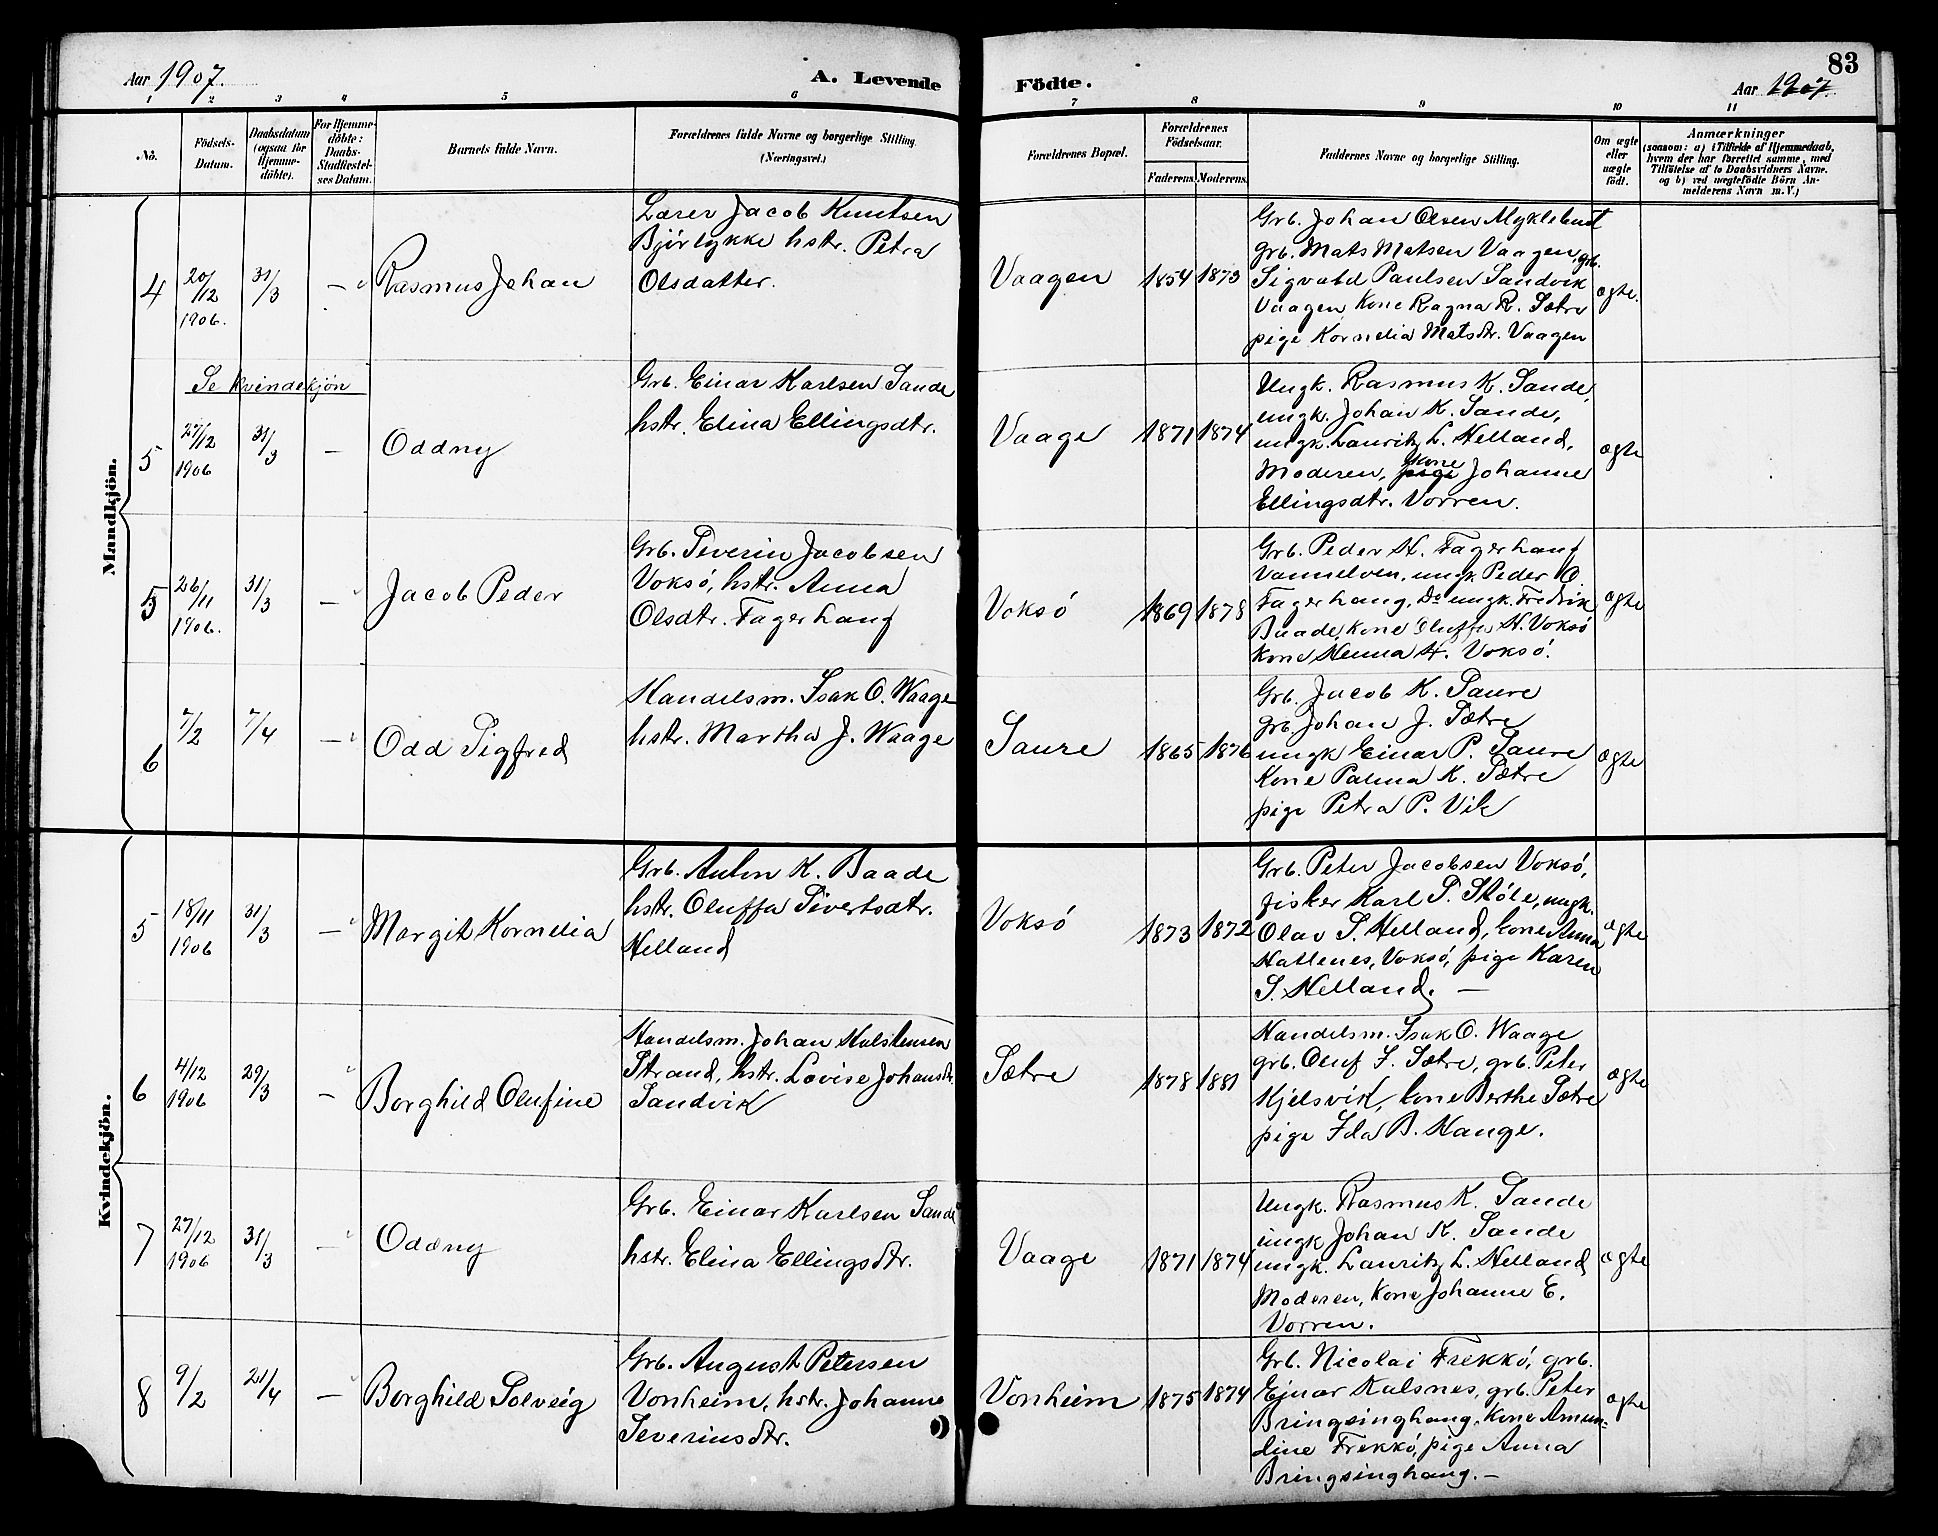 Aar 1907. A. Levende Födte. Aar 1907. 83
1 2 3 4 5 6 7 8 9 10 11
No.
Födsels-Datum.
Daabsdatum (ogsaa for Hjemme-döbte).
For Hjemme-döbte: Daabs-Stadfæstel-ses Datum.
Barnets fulde Navn.
Forældrenes fulde Navne og borgerlige Stilling.
(Næringsvei.)
Forældrenes Bopæl.
Forældrenes Födselsaar.
Faderens. Moderens.
Faddernes Navne og borgerlige Stilling.
Om ægte eller uægte födt.
Anmærkninger
(saasom: a) i Tilfælde af Hjemmedaab,
hvem der har forrettet samme, med
Tilföielse af to Daabsvidners Navne.
og b) ved uægtefödte Börn An-
melderens Navn m. V.)
Mandkjön.
4 20/12 1906. 31/3 — Rasmus Johan
Lærer Jacob Knutsen
Björlykke hstr. Petra
Olsdatter.
Vaagen 1854 1873
Grb. Johan Olsen Myklebust
grb. Mats Matsen Vaagen, grb.
Sigvald Paulsen Sandvik
Vaagen, Kone Ragna R. Sætre
pige Kornelia Matsdtr. Vaagen
ægte.
Se kvindekjön
5 27/12 1906 31/3 — Oddny
Grb. Einar Karlsen Sande
hstr. Elina Ellingsdtr.
Vaage 1871 1874
Ungk. Rasmus K. Sande,
ungk. Johan K. Sande,
ungk. Lauritz L. Helland,
Moderen, kone pige Johanne
Ellingsdtr. Vorren.
ægte
5 26/11 1906. 31/3 — Jacob Peder
Grb. Severin Jacobsen
Voksö, hstr. Anna
Olsdtr. Fagerhang
Voksö 1869 1878
Grb. Peder H. Fagerhang
Vannelven, ungk Peder O.
Fagerhang, Do ungk. Fredrik
Baade, kone Oluffa H. Voksö
Kone Henna H. Voksö.
ægte
6 7/2 7/4 — Odd Sigfred
Handelsm. Isak O. Waage
hstr. Martha J. Waage
Saure 1865 1876
Grb. Jacob K. Saure
grb Johan J. Sætre
ungk Einar P. Saure
Kone Palma K. Sætre
pige Petra P. Vik
ægte
Kvindekjön.
5 18/11 1906 31/3 — Margit Kornelia
Grb. Anton K. Baade
hstr. Oluffa Sivertsdtr.
Helland
Voksö 1873 1872
Grb. Peter Jacobsen Voksö,
fisker Karl P. Stöle, ungk.
Olav S. Helland, kone Anna
Hatlenes, Voksö, pige Karen
S. Helland. —
ægte
6 4/12 1906 29/3 — Borghild Olufine
Handelsm. Johan Halstensen
Strand, hstr. Lovise Johansdtr.
Sandvik
Sætre 1878 1881
Handelsm. Isak O. Waage
grb. Oluf I. Sætre, grb. Peter
Kjelsvik, kone Berthe Sætre
pige Ida B. Hauge.
ægte
7 27/12 1906 31/3 — Oddny
Grb. Einar Karlsen Sande
hstr. Elina Ellingsdtr.
Vaage 1871 1874
Ungk. Rasmus K. Sande
ungk Johan K. Sande
ungk. Lauritz L. Helland
Moderen, Kone Johanne E.
Vorren.
ægte
8 9/2 21/4 — Borghild Solveig
Grb. August Petersen
Vonheim, hstr. Johanne
Severinsdtr.
Vonheim 1875 1874
Grb. Nicolai Frekkö, grb.
Ejnar Kulsnes, grb. Peter
Bringsinghaug, Kone Amun-
dine Frekkö, pige Anna
Bringsinghaug. —
ægte